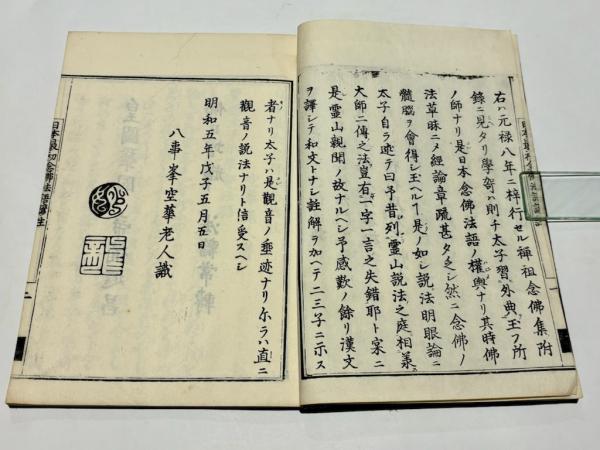 右ハ元禄八年ニ梓行セル禅祖念佛集附
録ニ見タリ學哿ハ則チ太子習外典玉フ所
ノ師ナリ是日本念佛法語ノ權輿ナリ其時佛
法草昧ニメ經論章疏甚タ乏シ然ニ念佛ノ
髓腦ヲ會得シ玉ヘルヿ是ノ如シ説法明眼論ニ
太子自ラ迹テ曰予昔列靈山説法之庭相承
大師ニ傳之法豈有一字一言之失錯耶ト寔ニ
是靈山親聞ノ故ナルヘシ予感歎ノ餘リ漢文
ヲ譯シテ和文トナシ註解ヲ加ヘテ二三子ニ示ス
者ナリ太子ハ是觀音ノ垂迹ナリ尓ラハ直ニ
觀音ノ説法ナリト信受スヘシ
明和五年戊子五月五日
八事峯空華老人識
日本最初念佛法語
二
一